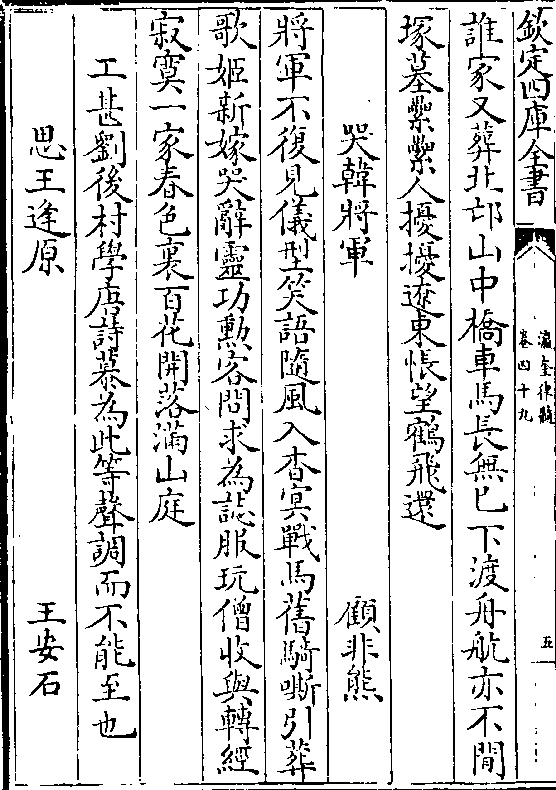 欽定四庫全書
瀛奎律髓
卷四十九
五
誰家又葬北邙山中橋車馬長無已下渡舟航亦不閒
塚墓纍纍人擾擾遼東悵望鶴飛還
哭韓將軍 顧非熊
將軍不復見儀型笑語隨風入杳冥戰馬舊騎嘶引葬
歌姬新嫁哭辭靈功勲客問求為誌服玩僧收與轉經
寂寞一家春色裏百花開落滿山庭
工甚劉後村學唐詩慕為此等聲調而不能至也
思王逢原 王安石